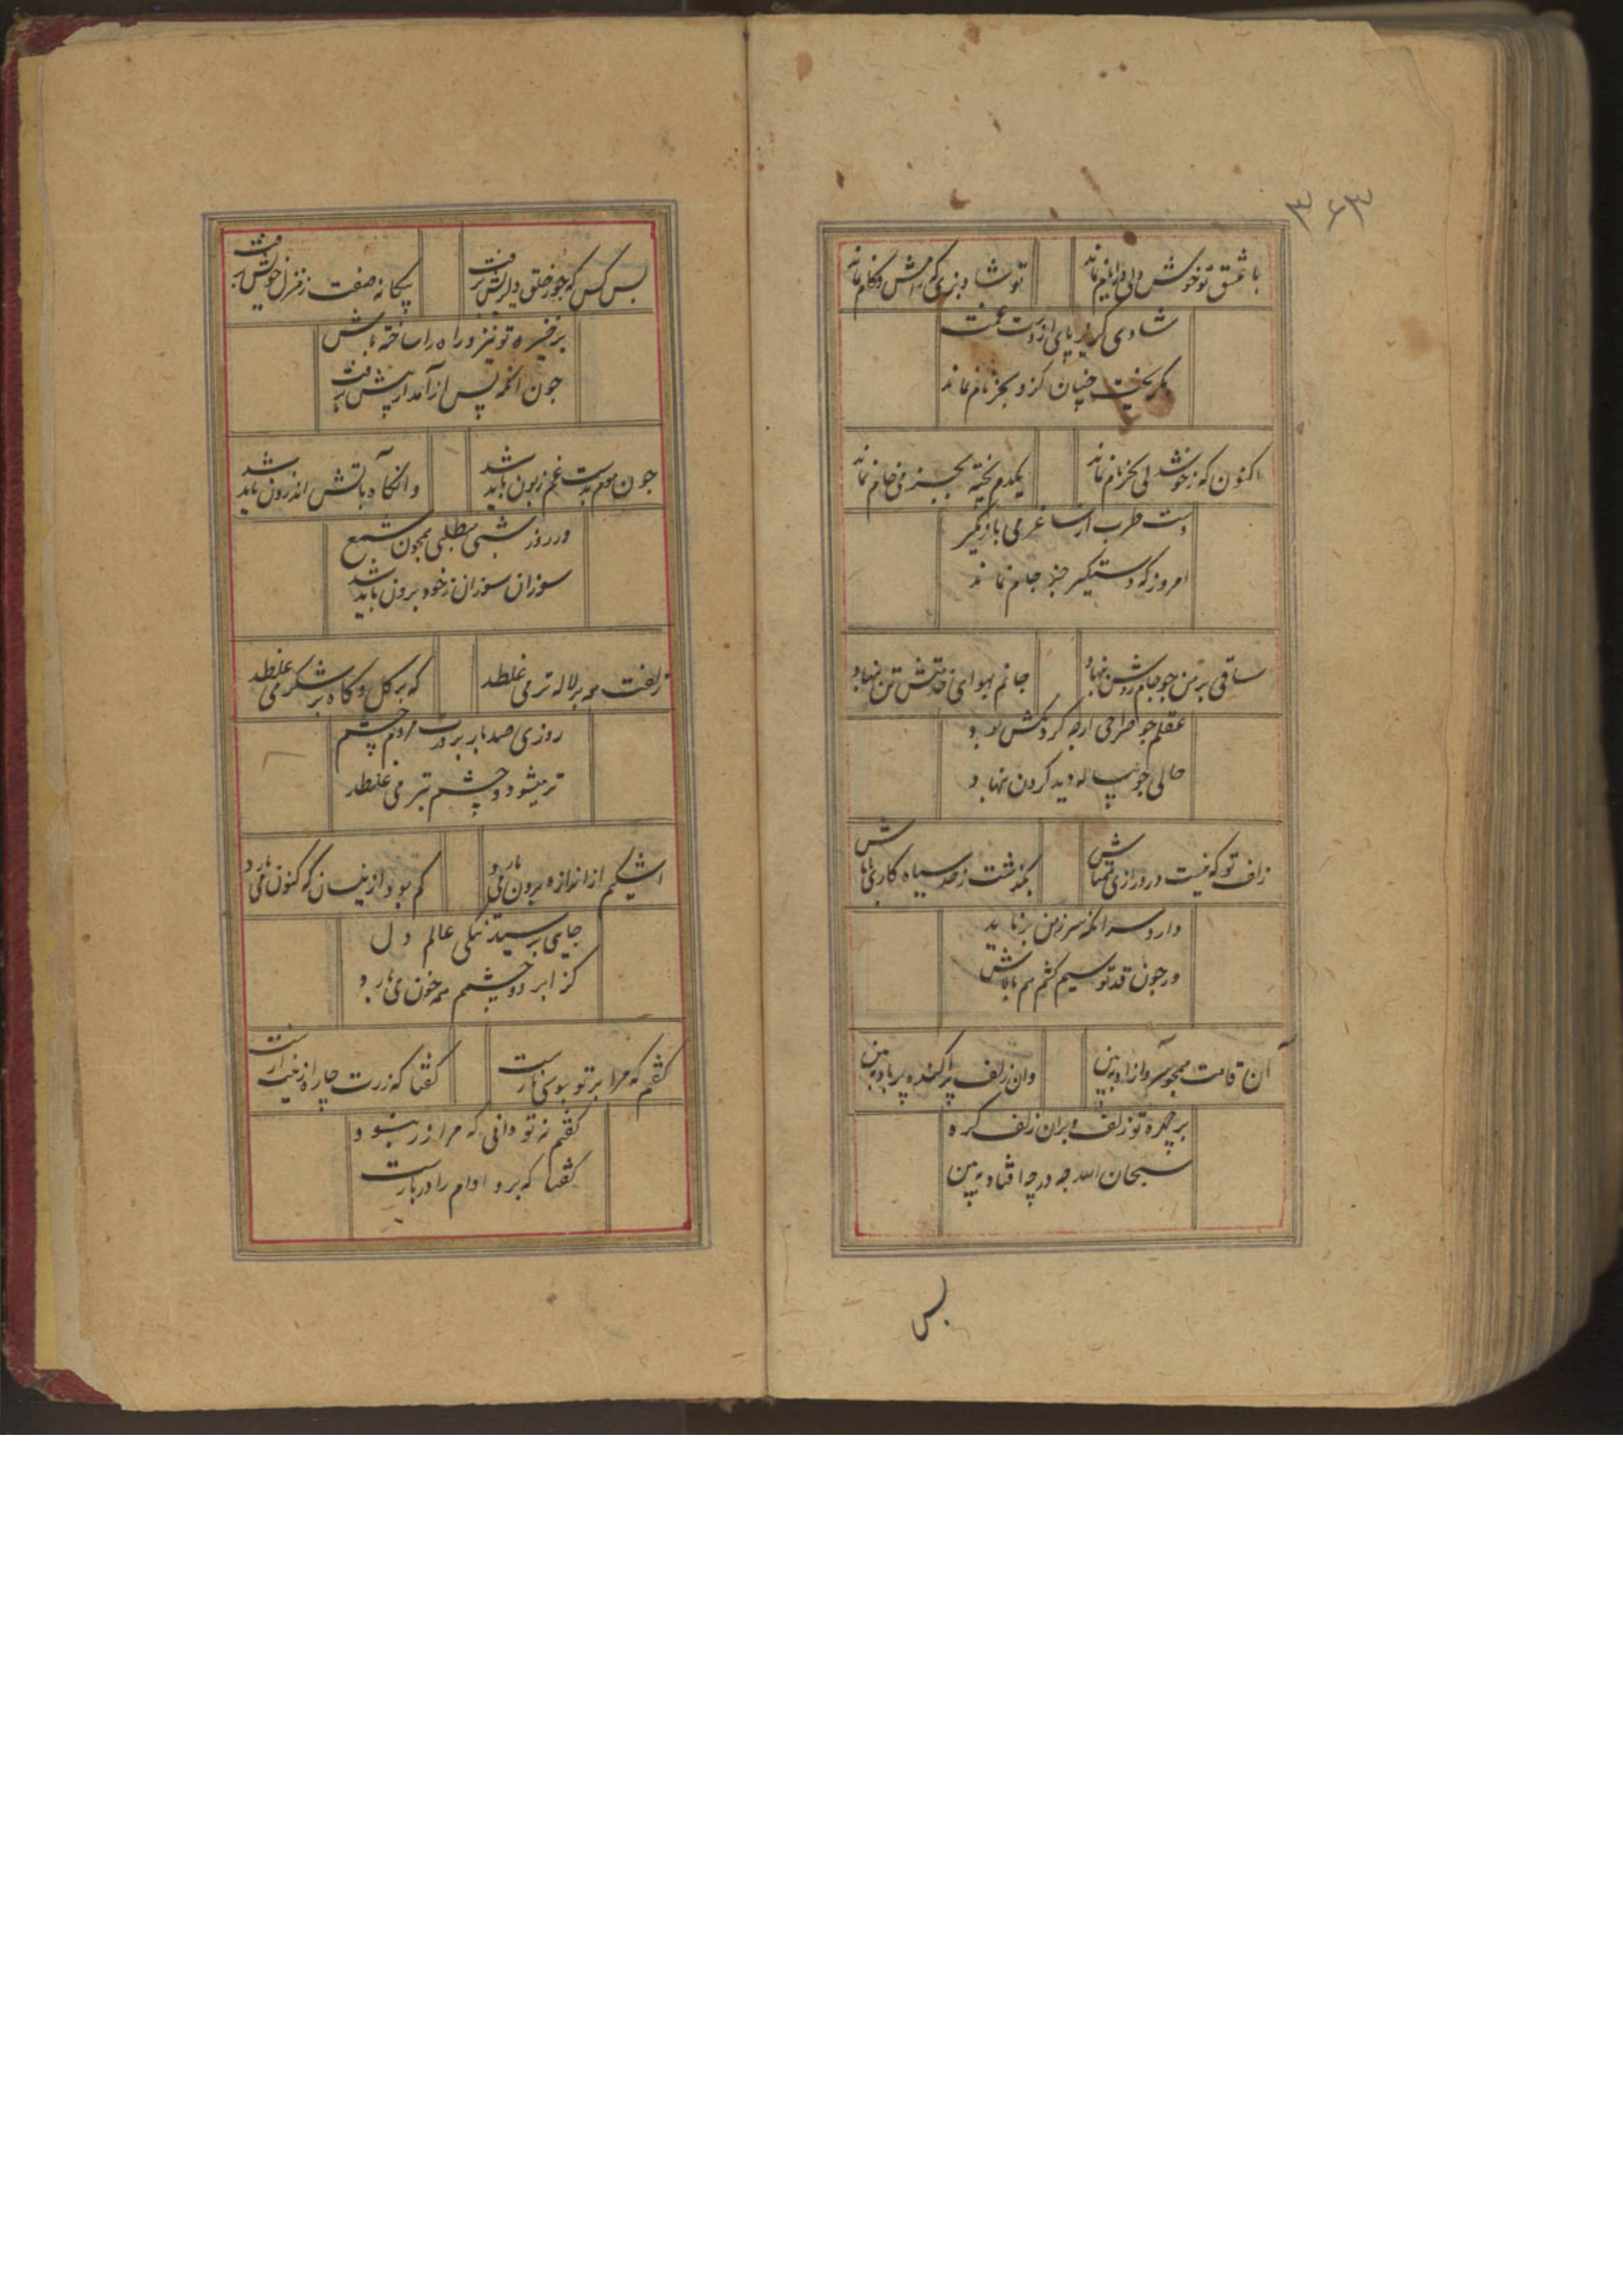 ۳۶۳
با عشق تو خوش دلی و رایم نماند
تو شاد بزی که رامش و کامم نماند
شادی که نهد پای از دست غمت
بگریخت چنان کزو بجز نام نماند
اکنون که ز خوشدلی بجز نام نماند
یکدم پخته بجز می خام نماند
دست طرب از ساغر می باز مگیر
امروز که دستگیر جز جام نماند
ساقی بر من جو جام روشن بنهاد
جانم بهوای خدمتش تن بنهاد
عقلم جو صراحی ارچه گردنکش بود
حالی جو پیاله دید گردن بنهاد
زلف تو که نیست در درازی همتاش
بگذشت ز حد سیاه کاریهاش
دارد سر انکه سر ز من برتابد
ور جون قد تو سیم کشم هم بالاش
آن قامت همجو سرو ازاد ببین
وان زلف پراکنده بر باد ببین
بر چهره تو زلف و بران زلف گره
سبحان الله چه در چه افتاد ببین
بس
بس کس که ز جور خلق دلریش برفت
بیکانه صفت ز منزل خویش برفت
برخیز و تو نیز راه را ساخته باش
جون انکه پس از آمد از پیش برفت
جون موم بدست غم زبون باید شد
وانگاه باتش اندرون باید شد
در روز شبی مطلبی همجون شمع
سوزان سوزان ز خود برون باید شد
زلفت همه بر لاله تر می غلطد
که بر کل و کاه بر شکر می غلطد
روزی صد بار بر درت مردم چشم
تر میشود و چشم تر می غلطد
اشکم از اندازه برون می بارد
کم بود ازینسان که کنون می بارد
جایی برسید تنکی عالم دل
کز ابر دو چشمم همه خون می بارد
کفتم که مرا بر تو بوسی کارست
کفتا که زرت چاره ازینت زارست
کفتم نه تو دانی که مرا زر نبود
کفتا که برو وام را در بارست